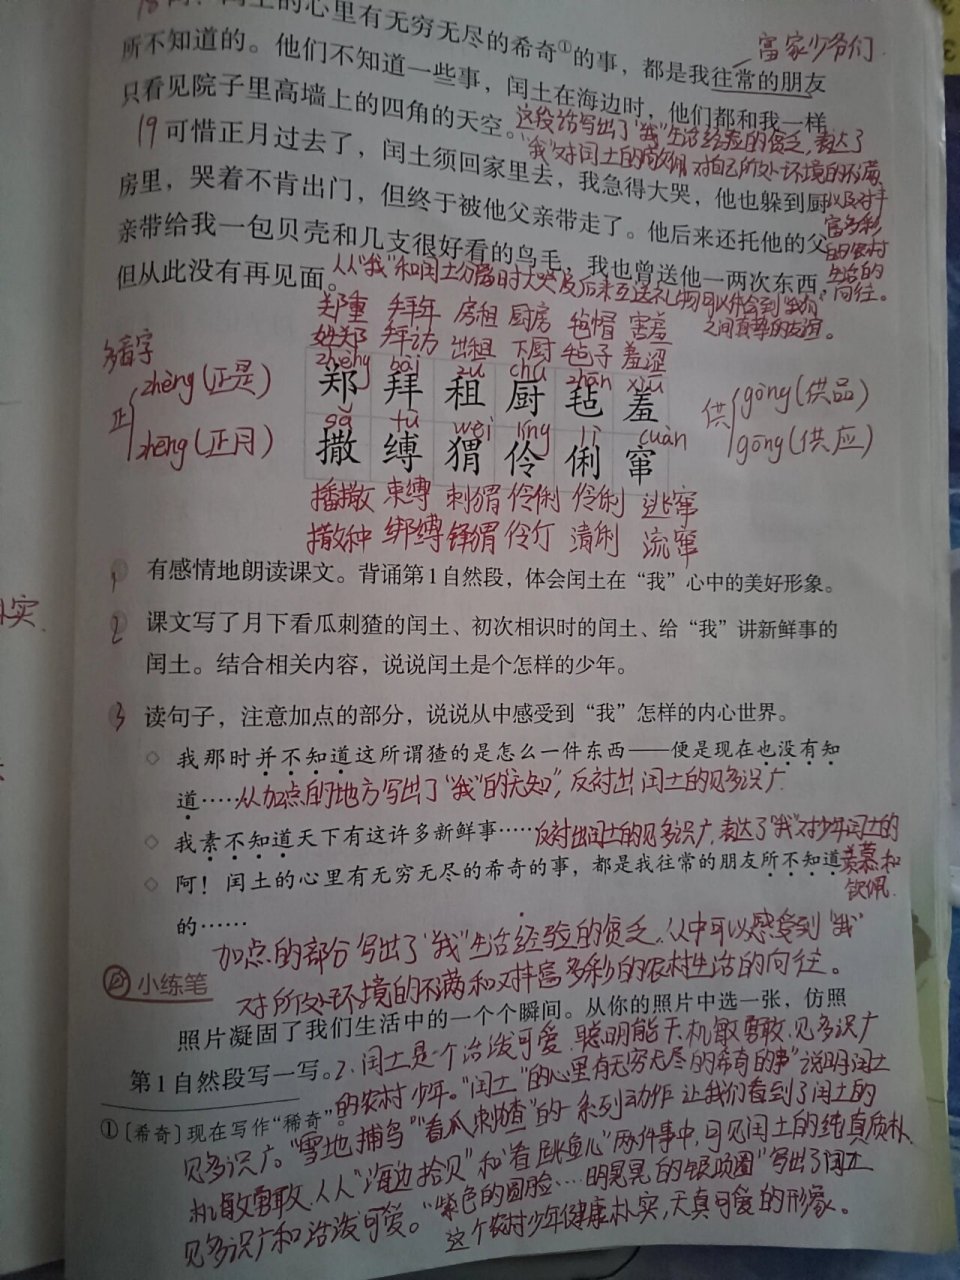 18
土的心里有无穷无尽的希奇①的事，都是我往常的朋友
富家少爷们
所不知道的。他们不知道一些事，闰土在海边时，他们都和我一样
只看见院子里高墙上的四角的天空。
这段话写出了“我”生活经验的贫乏，表达了
19可惜正月过去了，闰土须回家里去，我急得大哭，他也躲到厨
“我”对闰土的钦佩 对自己所处环境的不满
以及对丰
富多彩
的农村
生活的
向往。
房里，哭着不肯出门，但终于被他父亲带走了。他后来还托他的父
亲带给我一包贝壳和几支很好看的鸟毛，我也曾送他一两次东西，
但从此没有再见面。
从“我”和闰土分离时大哭及后来互送礼物可以体会到“我们”
之间真挚的友谊。
郑重 拜年 房租 厨房 毡帽 害羞
姓郑 拜访 出租 下厨 毡子 羞涩
zhèng bài zū chú zhān xiū
郑 拜 租 厨 毡 羞
sǎ fù wei líng lì cuàn
撒 缚 猬 伶 俐 窜
播撒 束缚 刺猬 伶俐 伶俐 逃窜
撒种 绑缚 伶仃 清俐 流窜
多音字
正 zhèng(正是)
zhēng(正月)
供 gòng(供品)
gōng(供应)
1 有感情地朗读课文。背诵第1自然段，体会闰土在“我”心中的美好形象。
2 课文写了月下看瓜刺猹的闰土、初次相识时的闰土、给“我”讲新鲜事的
闰土。结合相关内容，说说闰土是个怎样的少年。
3 读句子，注意加点的部分，说说从中感受到“我”怎样的内心世界。
◇ 我那时并不知道这所谓猹的是怎么一件东西——便是现在也没有知
道……从加点的地方写出了“我”的无知”，反衬出闰土的见多识广
◇ 我素不知道天下有这许多新鲜事……反衬出闰土的见多识广，表达了“我”对少年闰土的
羡慕和
钦佩.
◇ 阿！闰土的心里有无穷无尽的希奇的事，都是我往常的朋友所不知道
的……
加点的部分写出了“我”生活经验的贫乏。从中可以感受到“我”
对所处环境的不满和对丰富多彩的农村生活的向往。
小练笔
照片凝固了我们生活中的一个个瞬间。从你的照片中选一张，仿照
第1自然段写一写。
2、闰土是一个活泼可爱、聪明能干、机敏勇敢、见多识广
的农村少年。“闰土”的心里有无穷无尽的希奇的事”说明闰土
①[希奇]现在写作“稀奇”
见多识广。“雪地捕鸟”“看瓜刺猹”的一系列动作 让我们看到了闰土的
机敏勇敢，从“海边拾贝”和“看跳鱼儿”两件事中，可见闰土的纯真质朴、
见多识广和活泼可爱。“紫色的圆脸……明晃晃的银项圈”写出了闰土
这个农村少年健康朴实，天真可爱的形象。